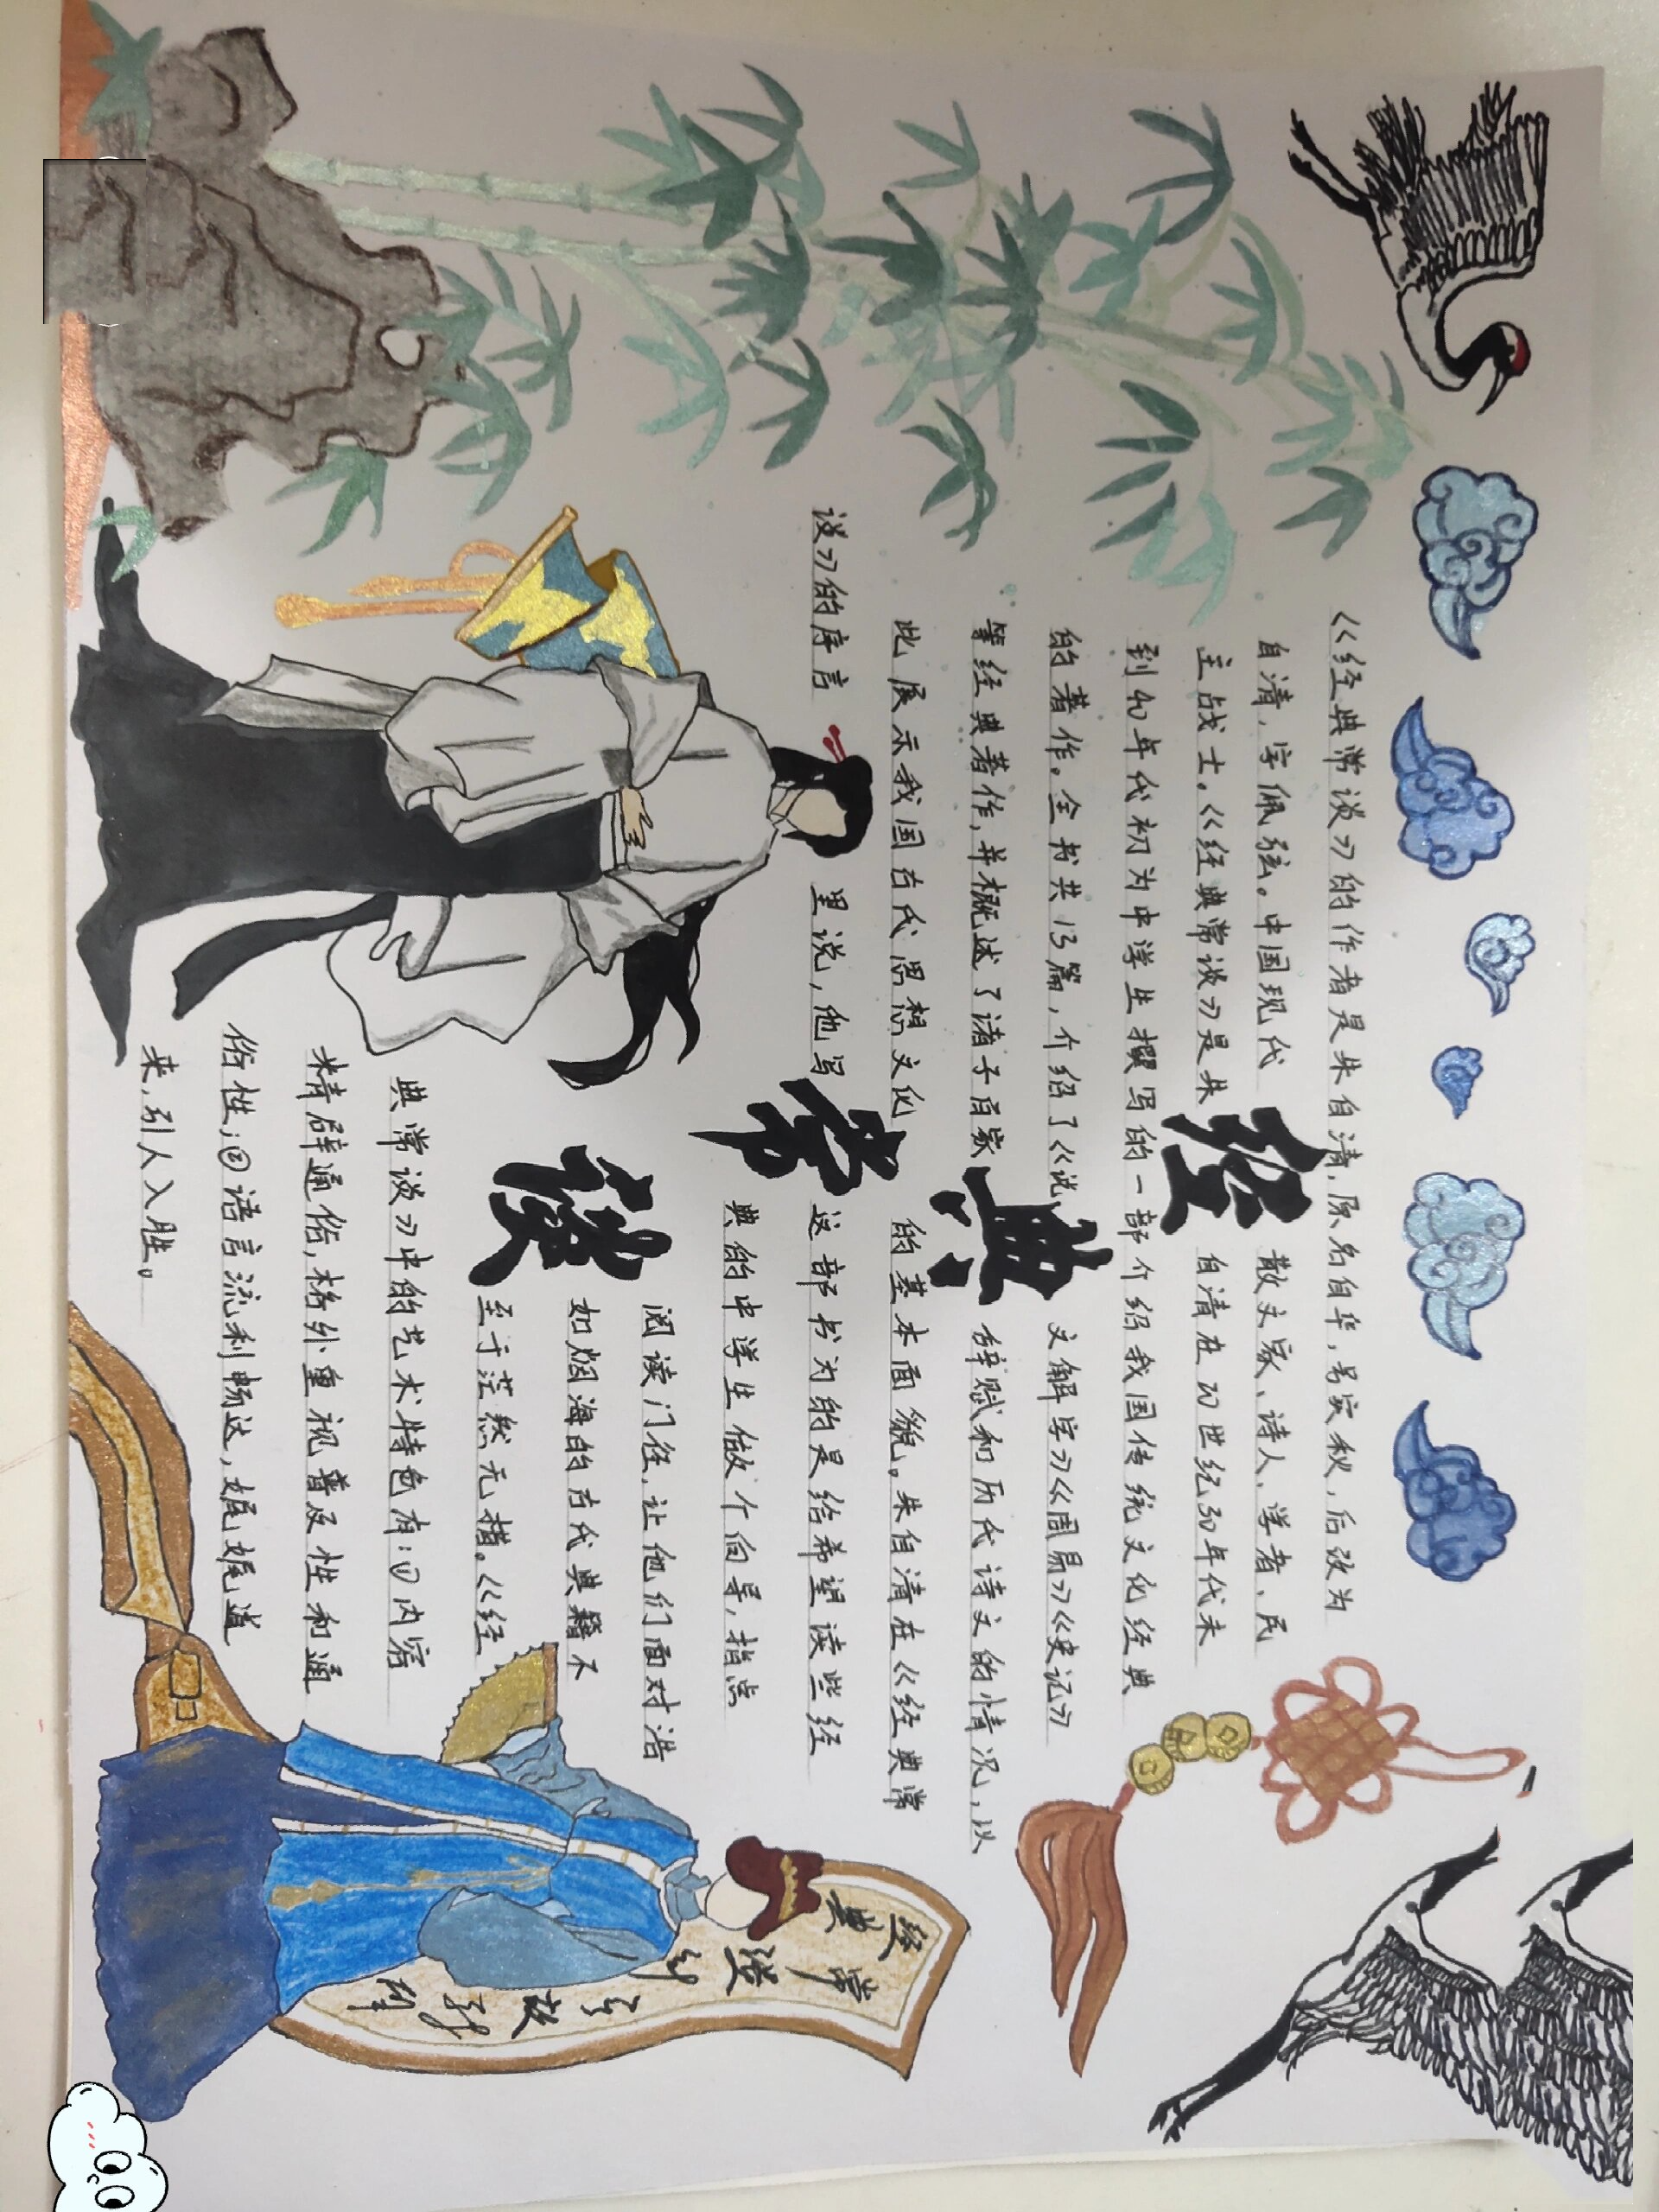 经典常谈
《经典常谈》的作者是朱自清,原名自华,号实秋,后改为
自清,字佩弦。中国现代散文家、诗人、学者、民
主战士。《经典常谈》是朱自清在20世纪30年代末
到40年代初为中学生撰写的一部介绍我国传统文化经典
的著作。全书共13篇,介绍了《说文解字》《周易》《史记》
等经典著作,并概述了诸子百家辞赋和历代诗文的情况,以
此展示我国古代思想文化的基本面貌。朱自清在《经典常
谈》的序言里说,他写这部书为的是给希望读些经
典的中学生做个向导,指点
阅读门径,让他们面对浩
如烟海的古代典籍不
至于茫然无措。《经
典常谈》中的艺术特色有:①内容
精辟通俗,格外重视普及性和通
俗性;②语言流利畅达,娓娓道
来,引人入胜。
经典
常谈